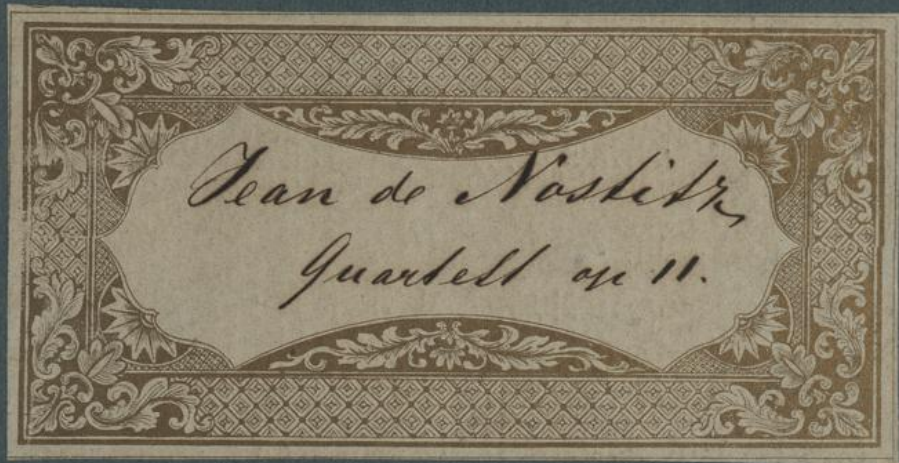 Jean de Nostitz,
Quartett op 11.